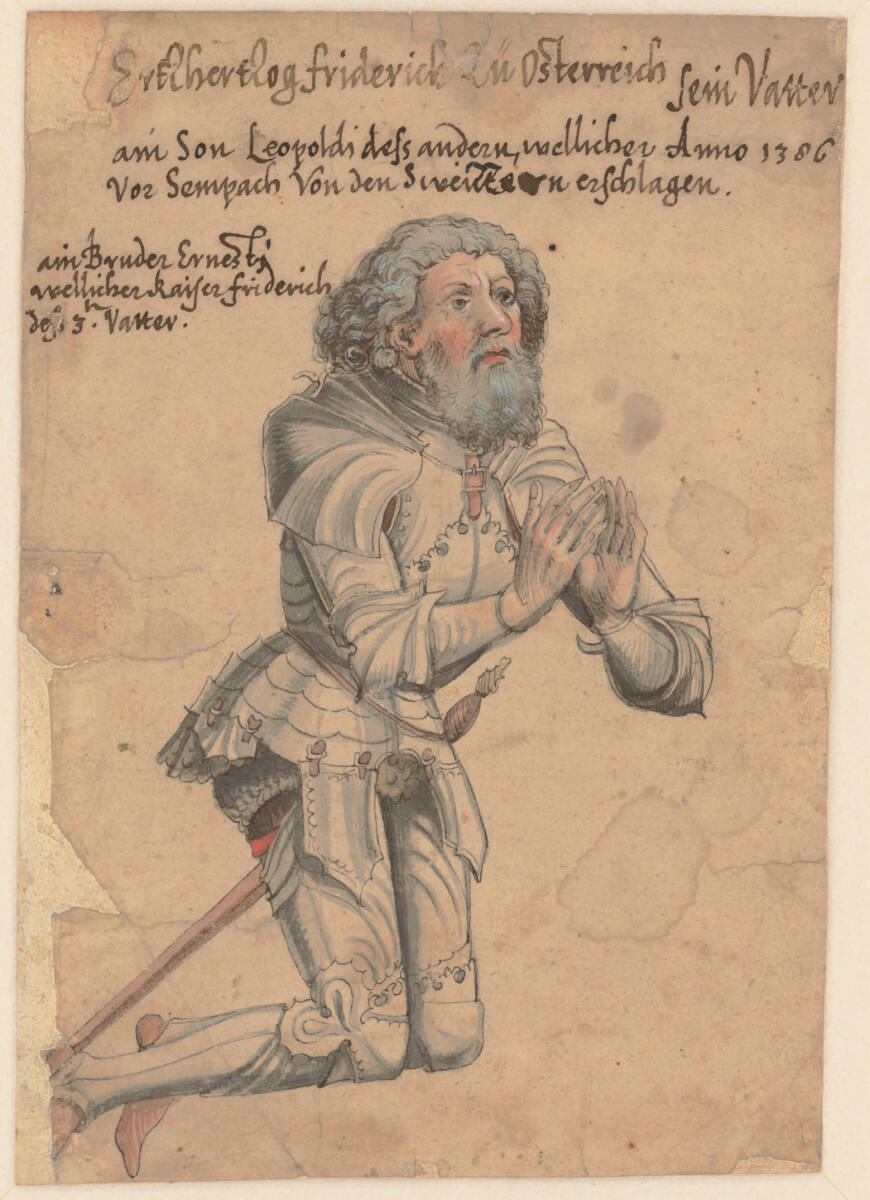 Ertzhertzog friderich zü Osterreich sein Vatter
ain Son Leopoldi dess andern, wellicher Anno 1386
vor Sempach von den Sweitzern erschlagen.
ain Bruder Ernesti
wellicher Kaiser friderich
des 3.n Vatter.